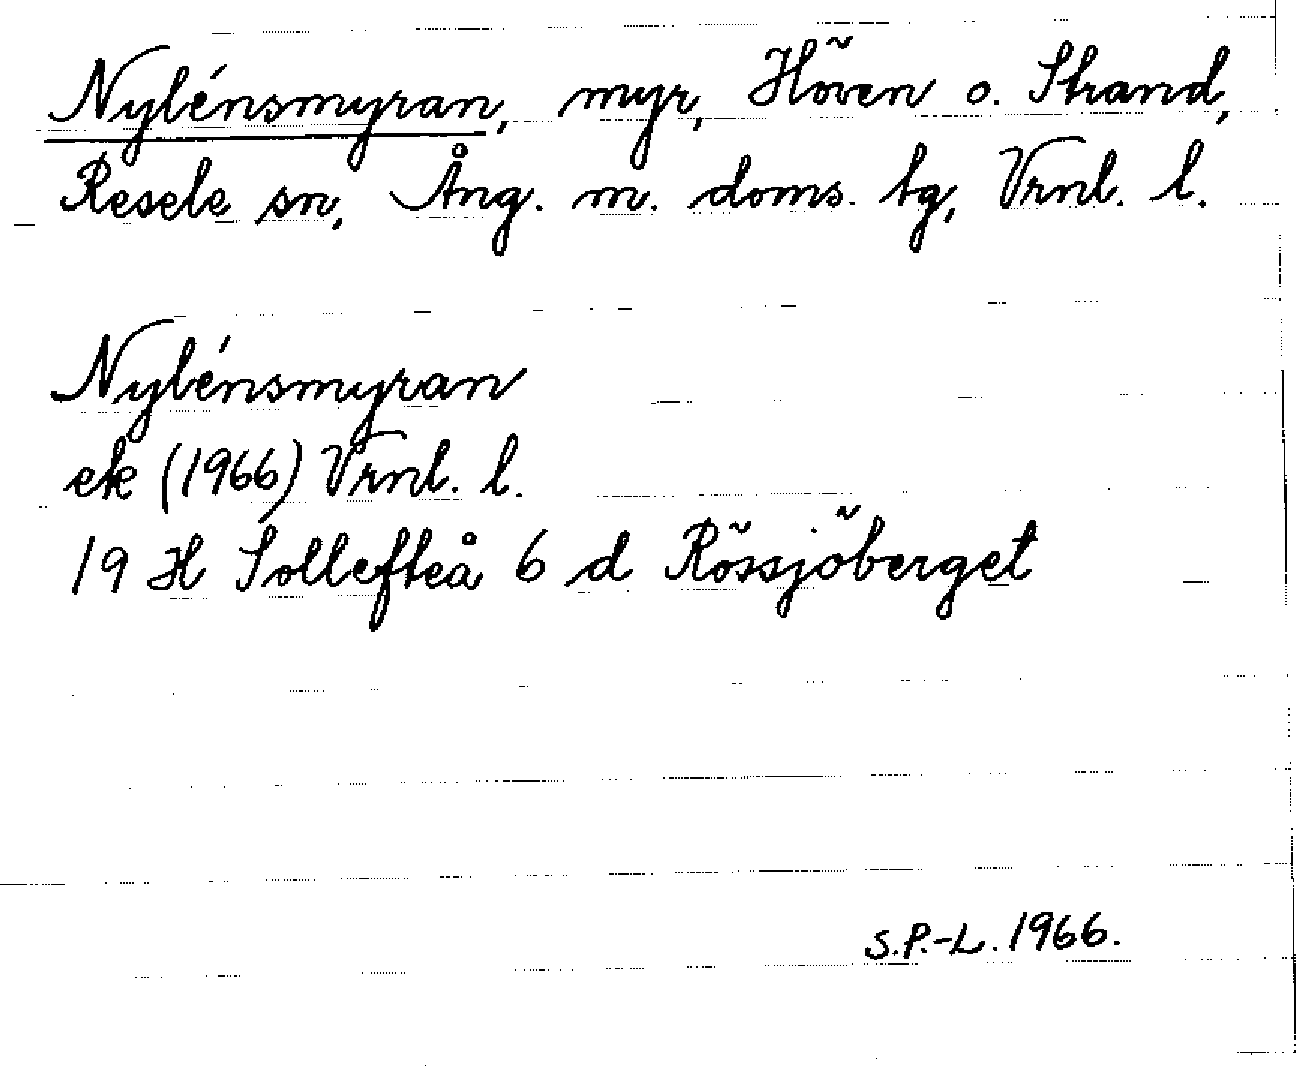 Nylénsmyran, myr, Höven o. Strand,
Resele sn, Ång. m. doms. tg, Vrnl. l.
Nylénsmyran
ek (1966) Vrnl. l.
19 H Sollefteå 6 d Rössjöberget
S.P.-L. 1966.